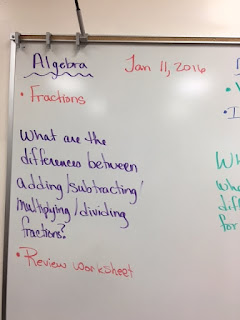 Algebra Jan 11, 2016
• Fractions
What are the
differences between
adding/subtracting/
multiplying/dividing
fractions?
• Review worksheet